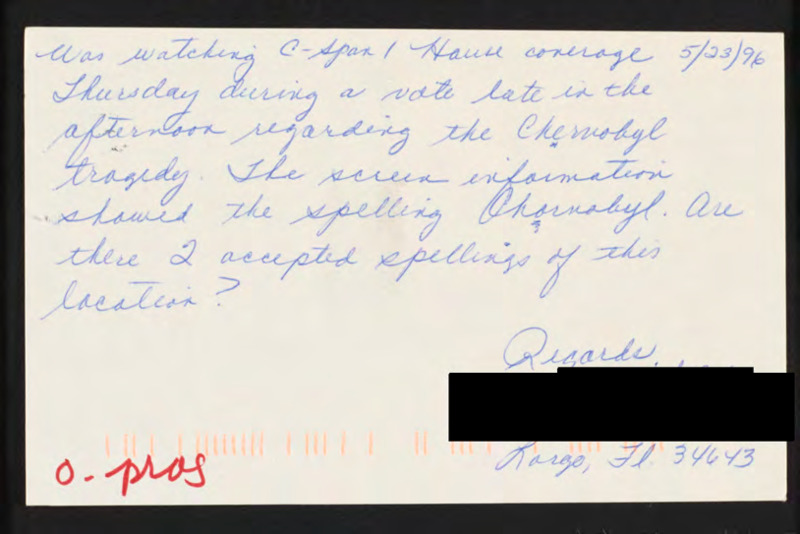 Was watching C-Span 1 House coverage 5/23/96
Thursday during a vote late in the
afternoon regarding the Chernobyl
tragedy. The screen information
showed the spelling Chornobyl. Are
there 2 accepted spellings of this
location?
Regards
Largo, Fl. 34643
O. pros